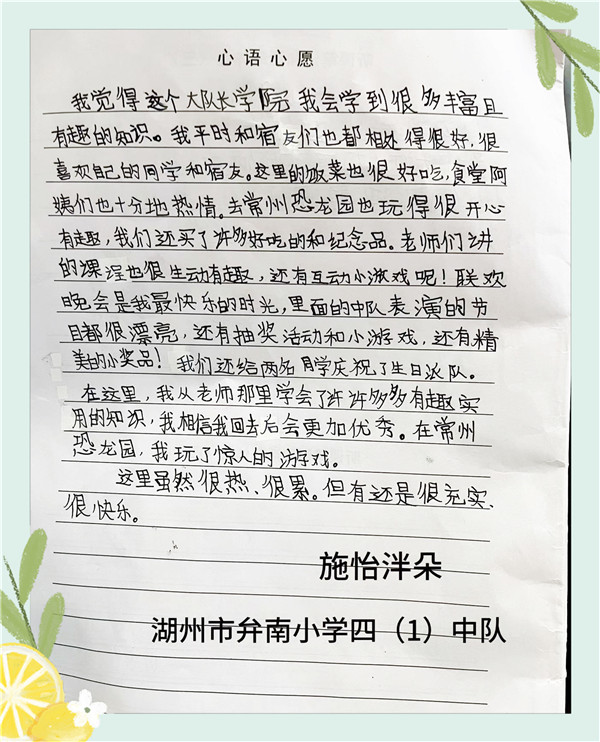 心语心愿
我觉得这个大队长学院我会学到很多丰富且
有趣的知识。我平时和宿友们也都相处得很好,很
喜欢自己的同学和宿友。这里的饭菜也很好吃,食堂阿
姨们也十分地热情。去常州恐龙园也玩得很开心
有趣,我们还买了许多好吃的和纪念品。老师们讲
的课程也很生动有趣,还有互动小游戏呢!联欢
晚会是我最快乐的时光,里面的中队表演的节
目都很漂亮,还有抽奖活动和小游戏,还有精
美的小奖品!我们还给两名同学庆祝了生日派队。
在这里,我从老师那里学会了许许多多有趣实
用的知识,我相信我回去后会更加优秀。在常州
恐龙园,我玩了惊人的游戏。
这里虽然很热、很累。但有还是很充实、
很快乐。
施怡泮朵
湖州市弁南小学四(1)中队